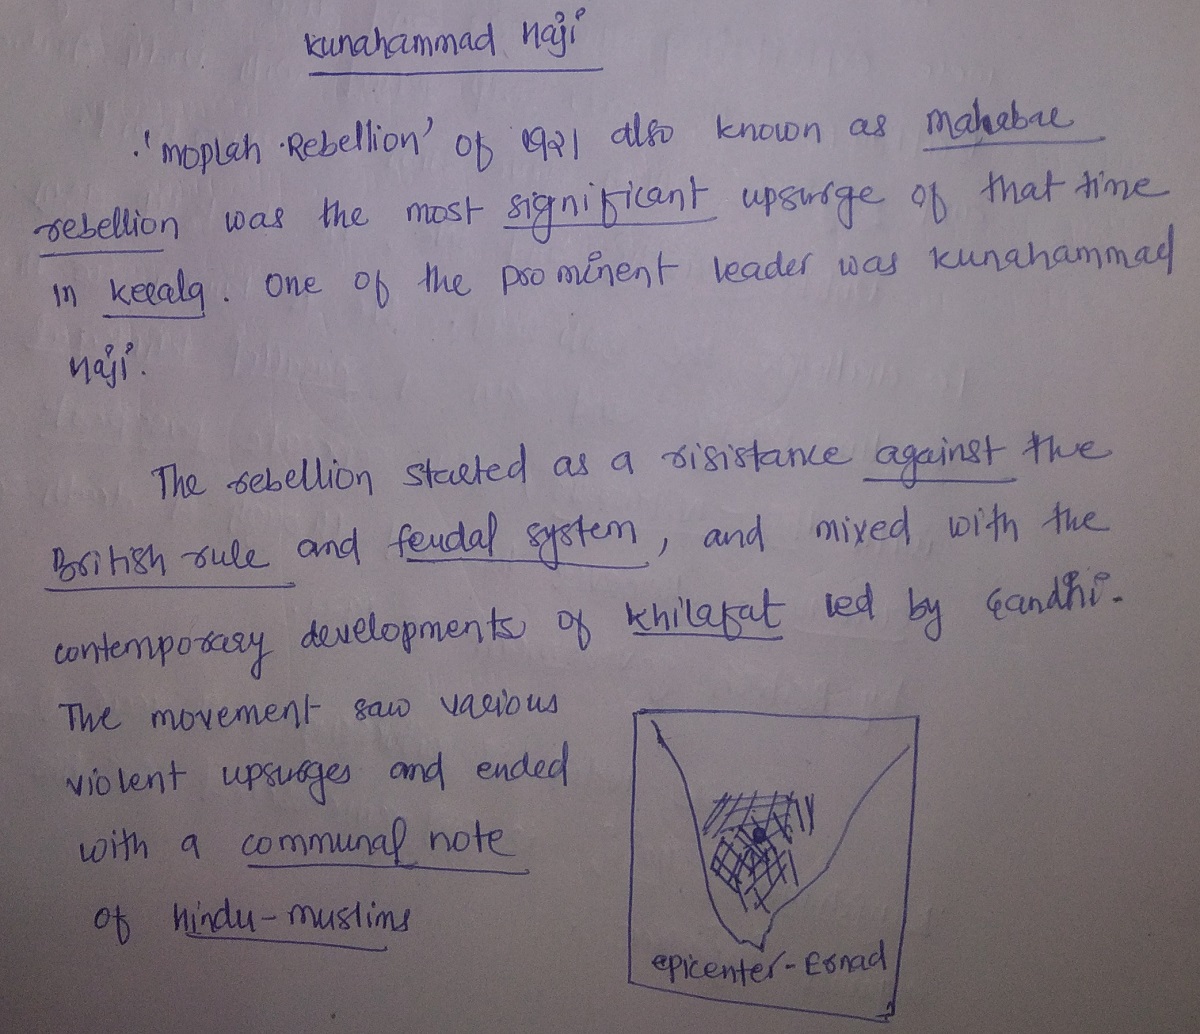 Kunahammad Haji
'Moplah Rebellion' of 1921 also known as Mahabar
rebellion was the most significant upsurge of that time
in Kerala. One of the prominent leader was Kunahammad
Haji.
The rebellion started as a risistance against the
British rule and feudal system, and mixed with the
contemporary developments of Khilafat led by Gandhi.
The movement saw various
violent upsurges and ended
with a communal note
of Hindu-muslims
epicenter-Ernad